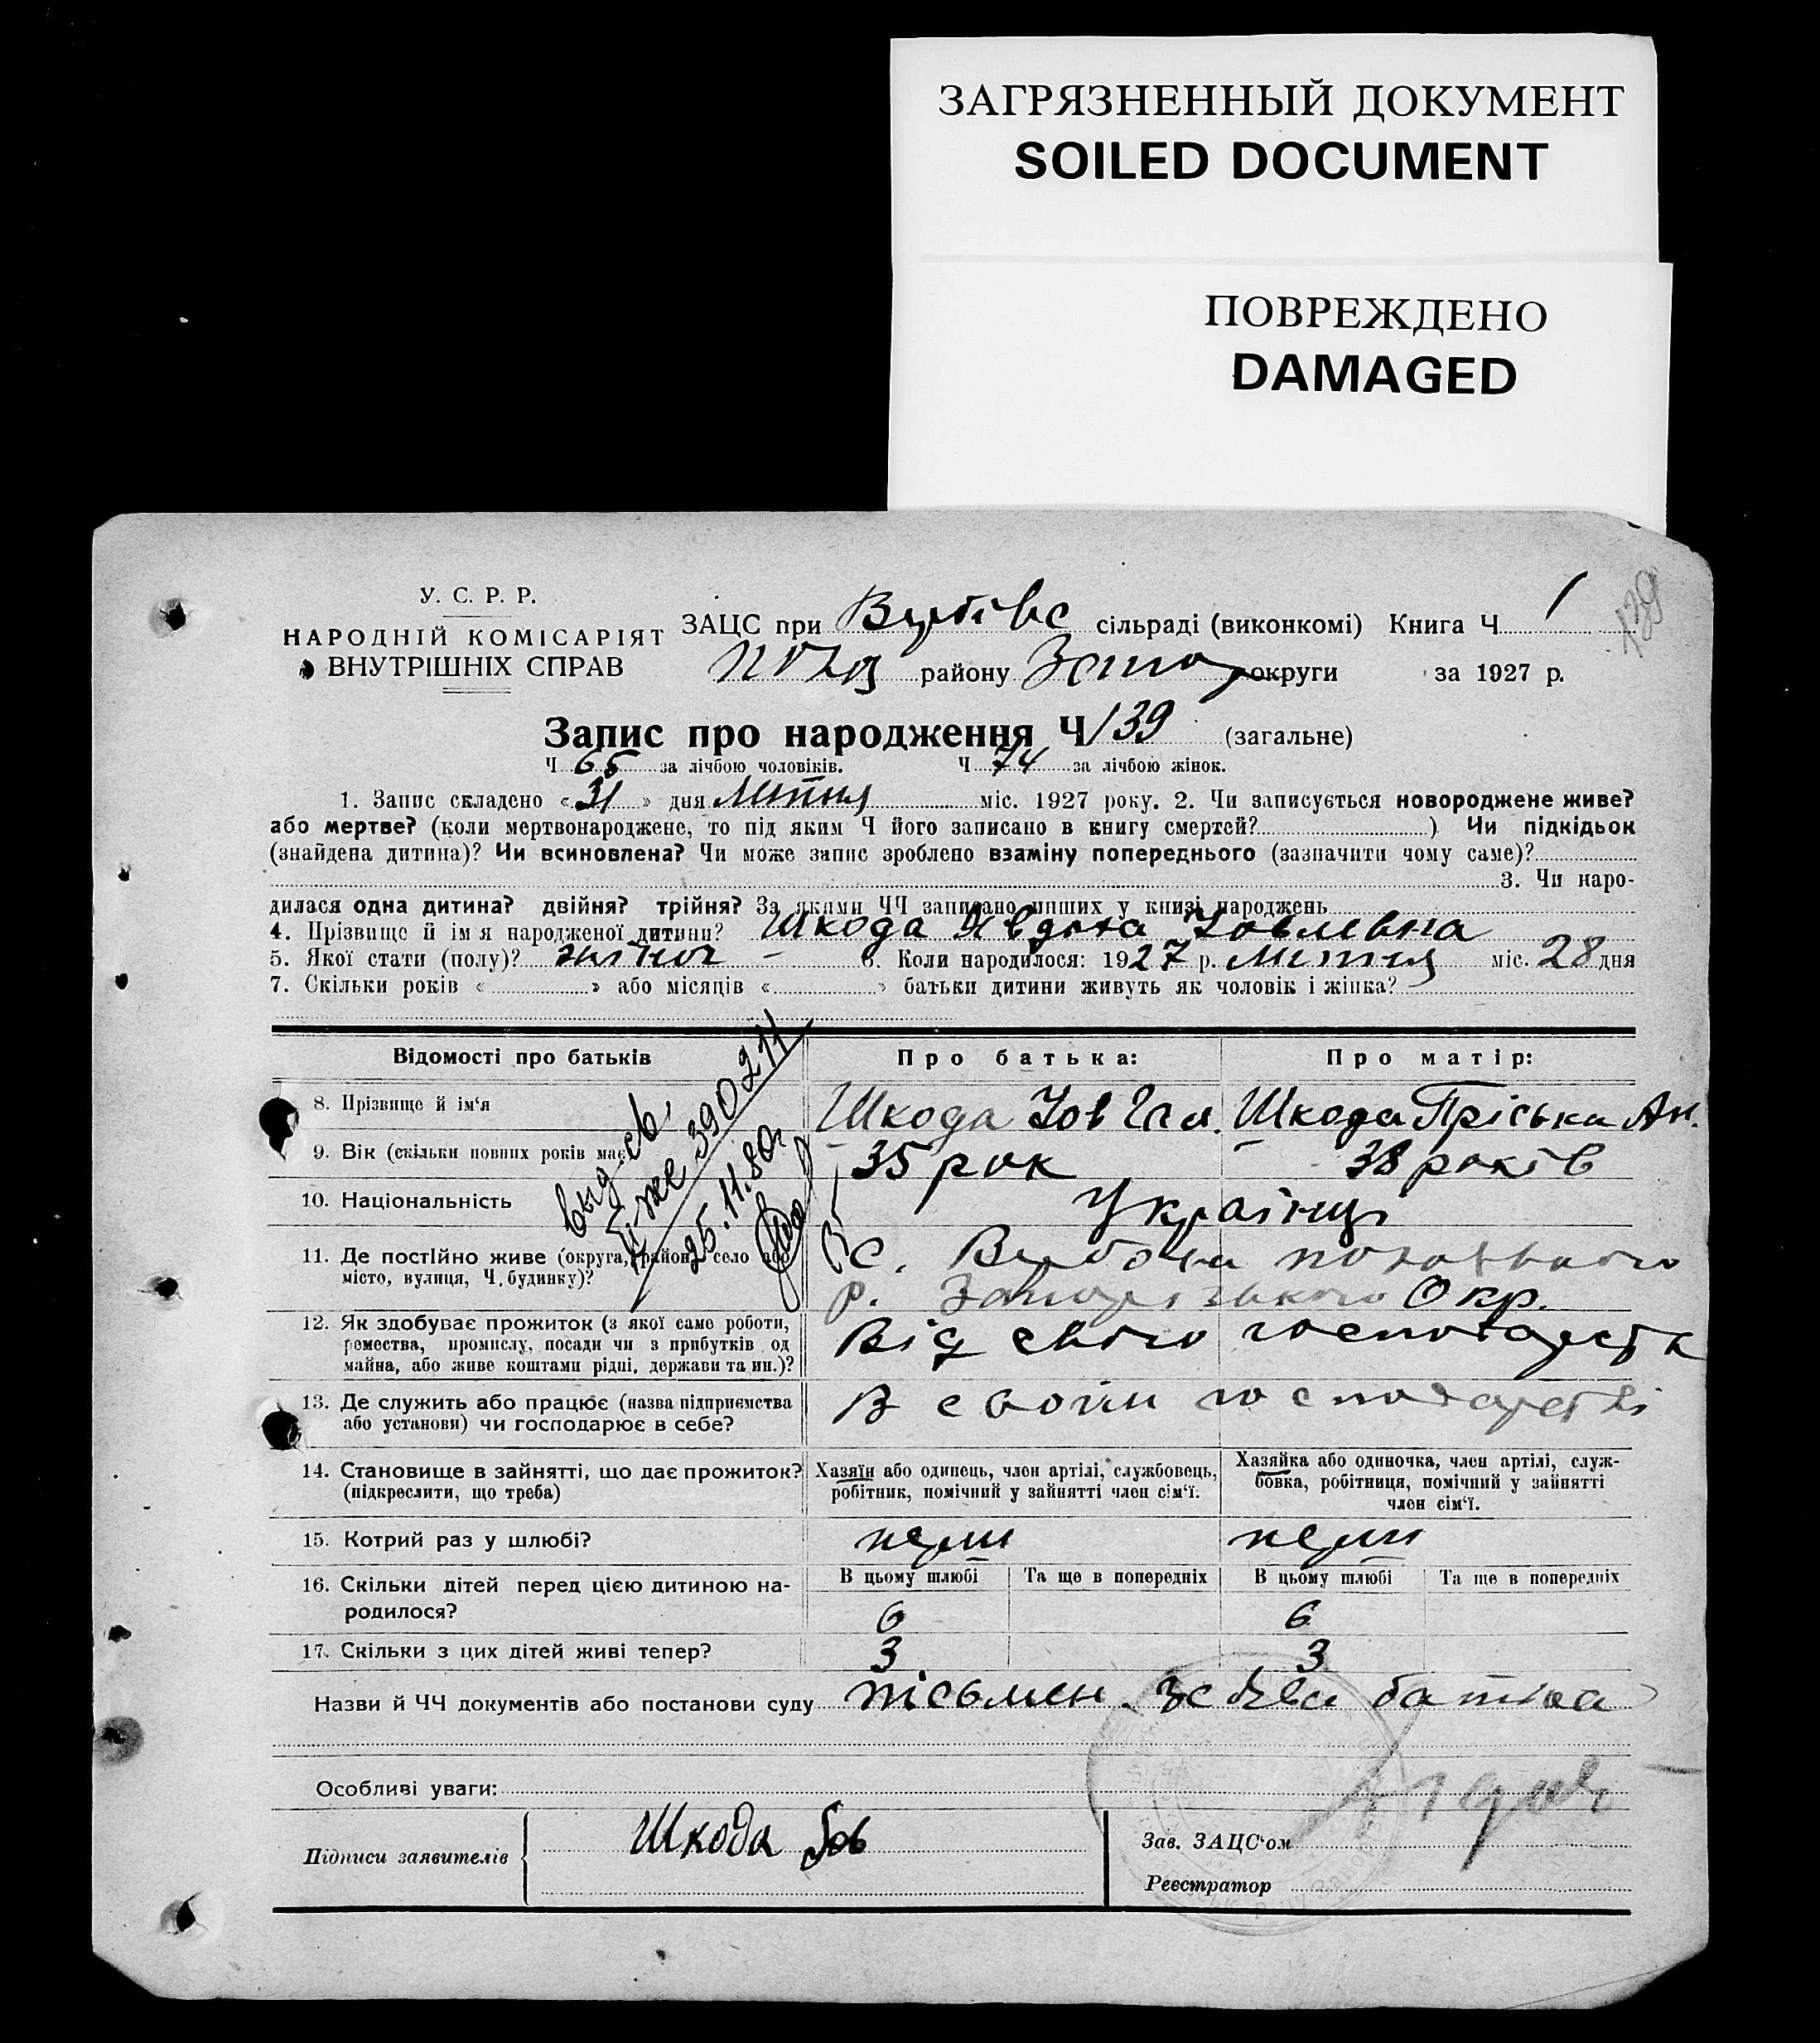 ЗАГРЯЗНЕННЫЙ ДОКУМЕНТ
SOILED DOCUMENT
ПОВРЕЖДЕНО
DAMAGED
У. С. Р. Р.
НАРОДНІЙ КОМІСАРІЯТ
ВНУТРІШНІХ СПРАВ
139
ЗАЦС при сільраді (виконкомі) Книга Ч 1
району округи за 1927 р.
Запис про народження Ч 139 (загальне)
Ч 65 за лічбою чоловіків. Ч 74 за лічбою жінок.
1. Запис складено « 31 » дня міс. 1927 року. 2. Чи записується новороджене живе?
або мертве? (коли мертвонароджене, то під яким Ч його записано в книгу смертей? ) Чи підкідьок
(знайдена дитина)? Чи всиновлена? Чи може запис зроблено взаміну попереднього (зазначити чому саме)?
3. Чи наро-
дилася одна дитина? двійня? трійня? За якими ЧЧ записано инших у книзі народжень
4. Прізвище й ім я народженої дитини? Шкода Явдоха Йовлевна
5. Якої стати (полу)? 6. Коли народилося: 1927 р. міс. 28 дня
7. Скільки років « » або місяців « » батьки дитини живуть як чоловік і жінка?
Відомості про батьків Про батька: Про матір:
8. Прізвище й ім‘я Шкода Йов Шкода Пріська Ан.
9. Вік (скільки повних років має 35 рок 38 років
10. Національність Українці
11. Де постійно живе (округа, район, село або С. Вербова
місто, вулиця, Ч. будинку)? р. Запорізького Окр.
12. Як здобуває прожиток (з якої саме роботи, Від свого господарства
ремества, промислу, посади чи з прибутків од
майна, або живе коштами рідні, держави та ин.)?
13. Де служить або працює (назва підприємства В своїм господарстві
або установи) чи господарює в себе?
14. Становище в зайнятті, що дає прожиток? Хазяїн або одинець, член артілі, службовець, Хазяйка або одиночка, член артілі, служ-
(підкреслити, що треба) робітник, помічний у зайнятті член сім‘ї. бовка, робітниця, помічний у зайнятті
член сім‘ї.
15. Котрий раз у шлюбі? перш перш
16. Скільки дітей перед цією дитиною на- В цьому шлюбі Та ще в попередніх В цьому шлюбі Та ще в попередніх
родилося? 6 6
17. Скільки з цих дітей живі тепер? 3 3
25.11.80г
Назви й ЧЧ документів або постанови суду письмен. батька
Особливі уваги:
Підписи заявителів Шкода Йов
Зав. ЗАЦС‘ом
Реєстратор